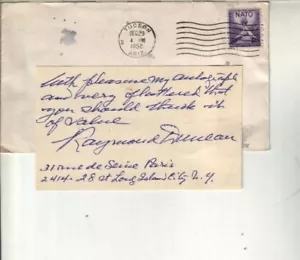 TUCSON
DEC 29
4 - PM
1952
ARIZ.
NATO
With pleasure my autograph
and very flattered that
you should think it
of value
Raymond Duncan
31 rue de Seine Paris
2414 - 28 st Long Island City N.Y.